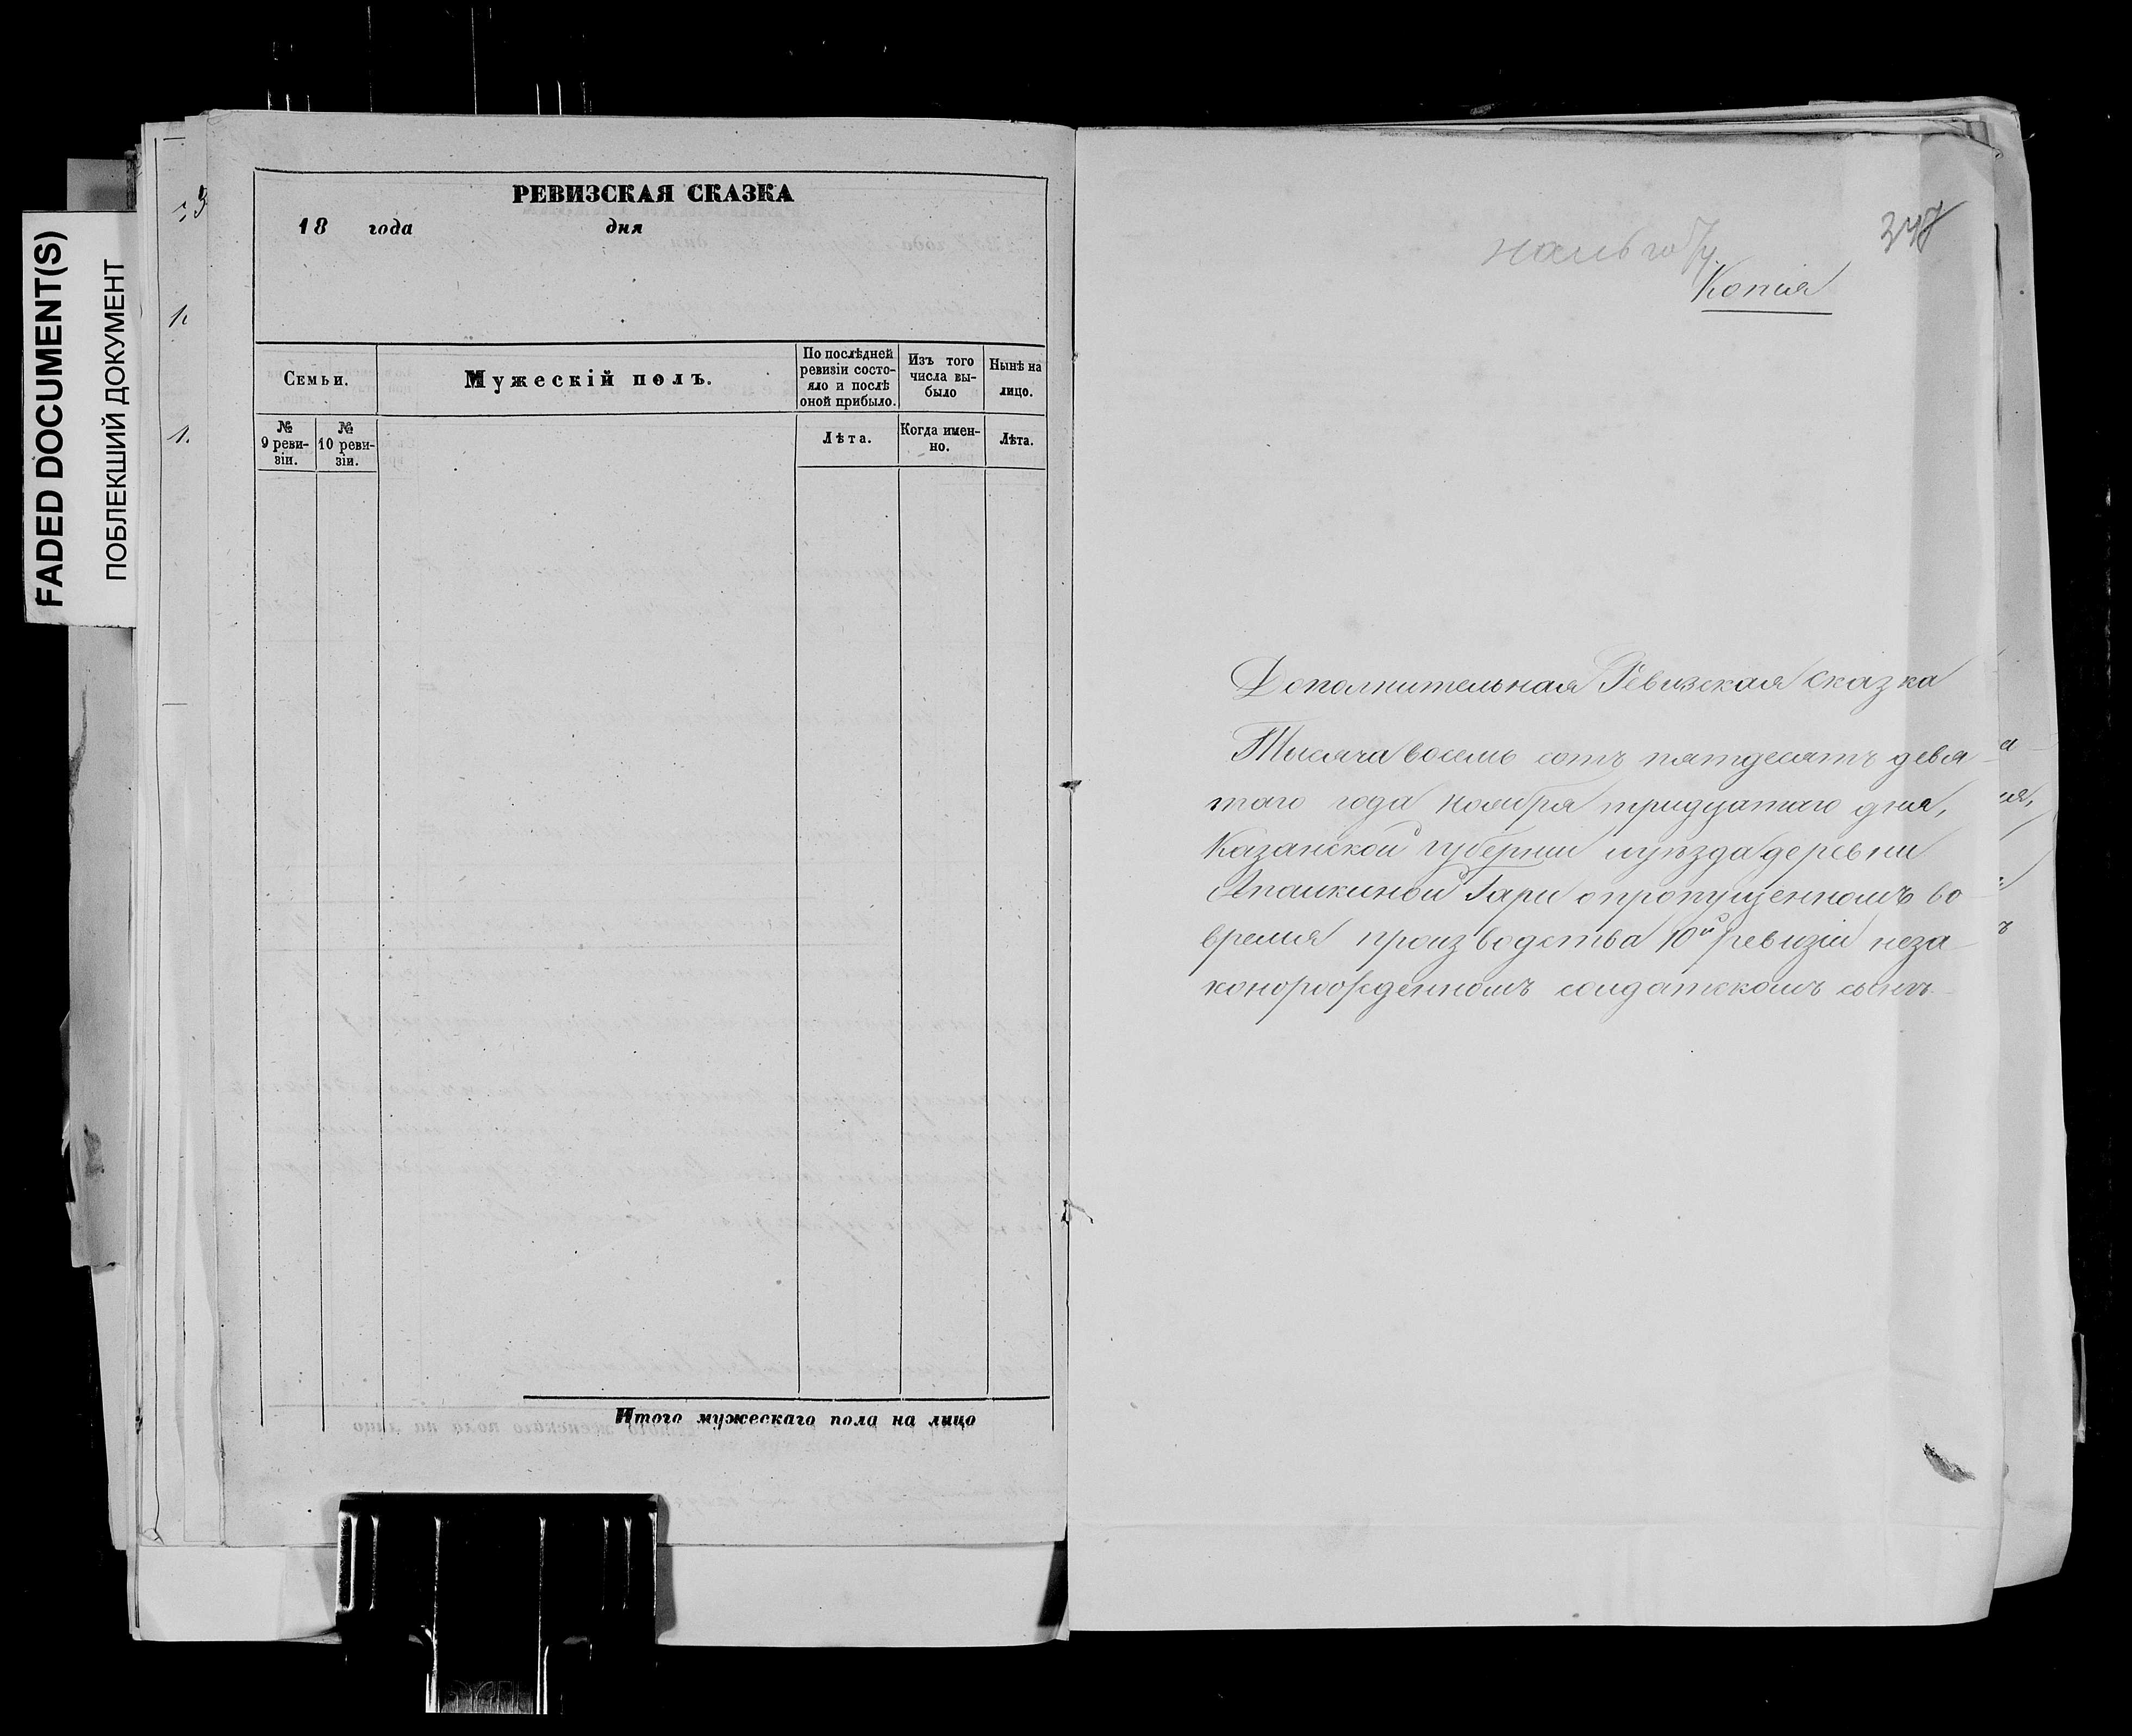 FADED DOCUMENT(S)
ПОБЛЕКШИЙ ДОКУМЕНТ
РЕВИЗСКАЯ СКАЗКА
18 года дня
Семьи.
Мужескій полъ.
По послѣдней
ревизіи состо-
яло и послѣ
оной прибыло.
Изъ того
числа вы-
было
Нынѣ на
лицо.
№
9 реви-
зіи.
№
10 реви-
зіи.
Лѣта.
Когда имен-
но.
Лѣта.
Итого мужескаго пола на лицо
Копія
Дополнительная Ревизская сказка
Тысяча восемь сотъ пятдесятъ девя
таго года ноября тридцатаго дня,
Казанской губерніи и уѣзда деревни
Апашкиной Гари о пропущенномъ во
время производства 10й ревизіи неза
конорожденномъ солдатскомъ сынѣ